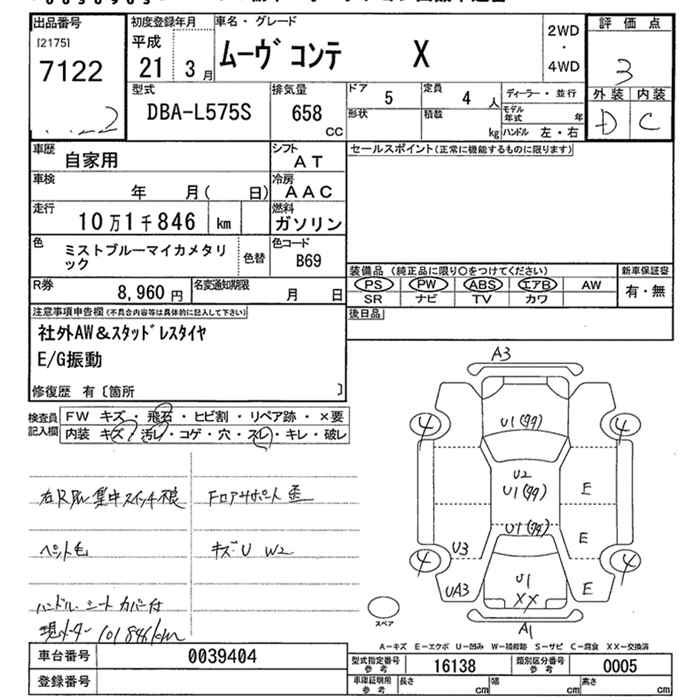 出品番号
[2175]
7122
初度登録年月
平成
21 3月
車名・グレード
ムーヴ コンテ X
2WD
・
4WD
評価点
3
外装 内装
D C
型式
DBA-L575S
排気量
658
CC
ドア
5
定員
4 人
ディーラー・並行
形状
積数
kg
モデル年式 年
ハンドル 左・右
車歴
自家用
シフト
AT
セールスポイント(正常に機能するものに限ります)
車検
年 月( 日)
冷房
AAC
走行
10万1千846 km
燃料
ガソリン
色
ミストブルーマイカメタリ
ック
色替
色コード
B69
装備品 (純正品に限り○をつけてください)
新車保証書
PS PW ABS エアB AW
SR ナビ TV カワ
有・無
R券
8,960 円
名変通知期限
月 日
後日品
注意事項申告欄(不具合内容等は具体的に記入して下さい)
社外AW&スタッドレスタイヤ
E/G振動
修復歴 有〔箇所 〕
検査員
記入欄
FW キズ・飛石・ヒビ割・リペア跡・×要
内装 キズ・汚レ・コゲ・穴・スレ・キレ・破レ
集中スイッチ不良
ペット毛
キズ・U W2
ハンドル・シートカバー付
現メーター 101846km
A3
4 4
U1
U2
U1
E
U1
E
U3
4 4
UA3
U1
XX
E
A1
スペア
A-キズ E-エクボ U-凹み W-補修跡 S-サビ C-腐食 XX-交換済
車台番号
0039404
型式指定番号
参考
16138
類別区分番号
参考
0005
登録番号
車庫証明用
参考
長さ cm
幅 cm
高さ cm